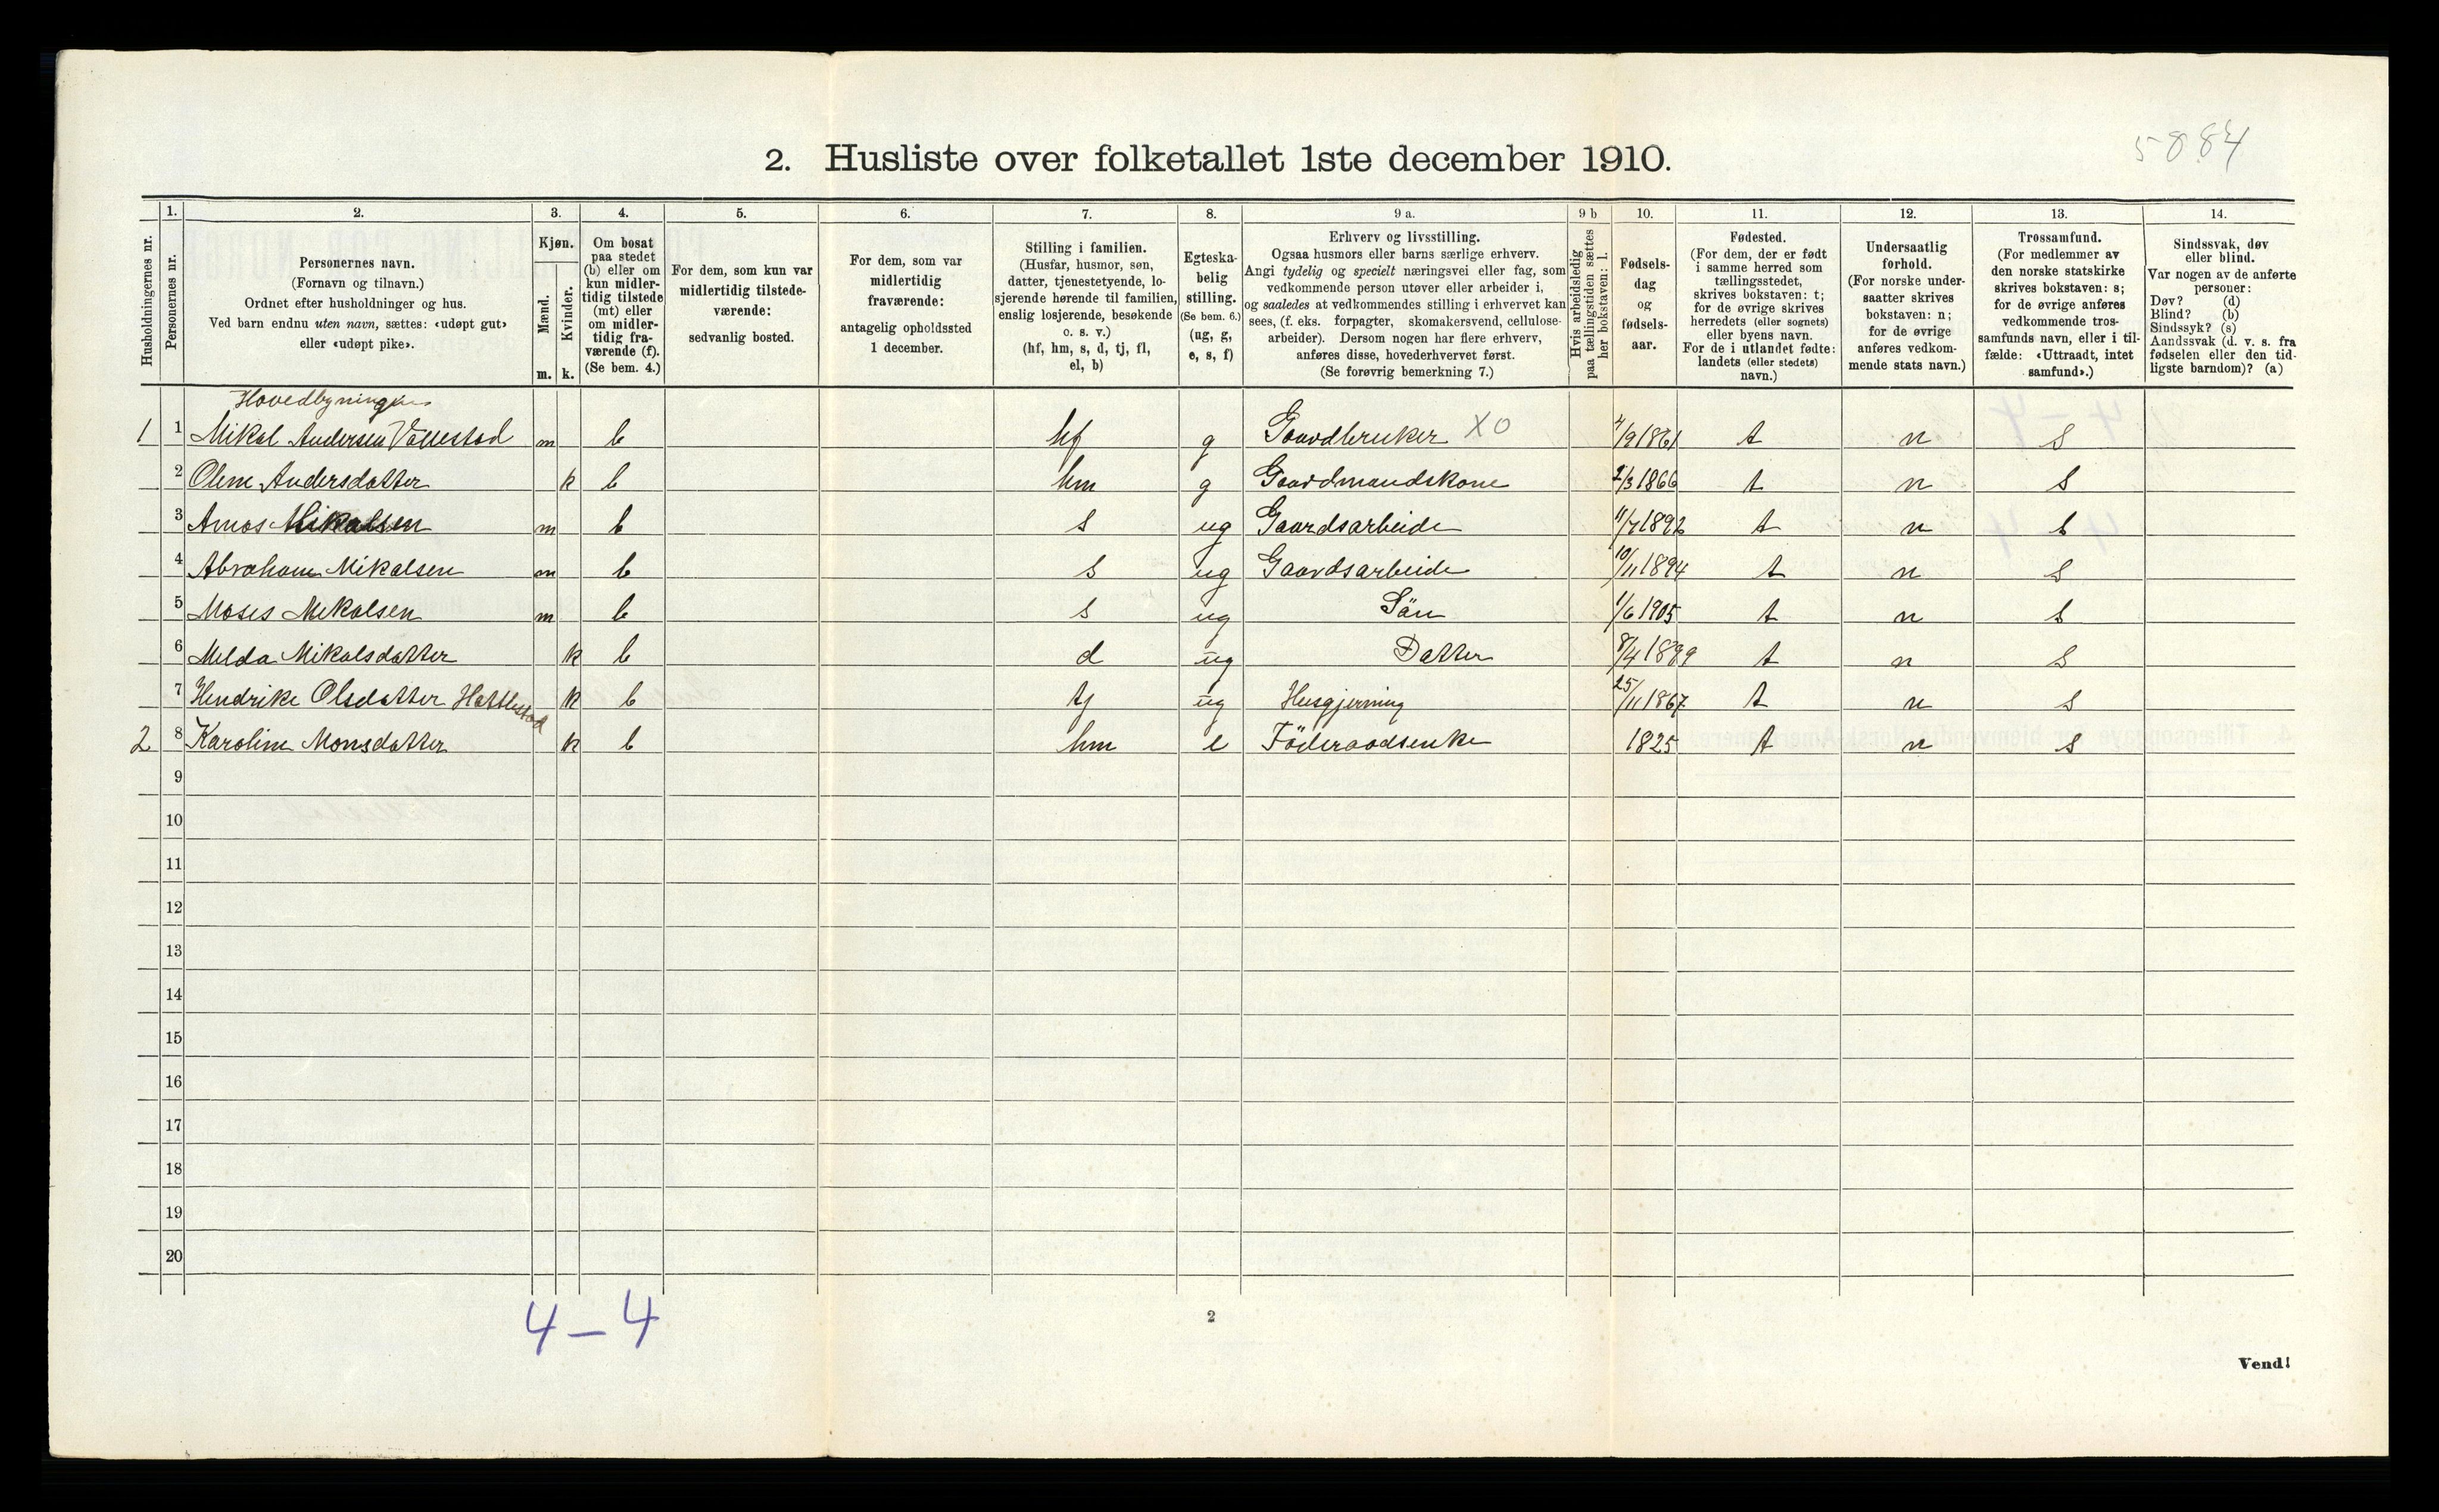 5884
2. Husliste over folketallet 1ste december 1910.
Husholdningernes nr.
1.
Personernes nr.
2.
Personernes navn.
(Fornavn og tilnavn.)
Ordnet efter husholdninger og hus.
Ved barn endnu uten navn, sættes: «udøpt gut»
eller «udøpt pike».
3.
Kjøn.
Mænd.
Kvinder.
m. k.
4.
Om bosat
paa stedet
(b) eller om
kun midler-
tidig tilstede
(mt) eller
om midler-
tidig fra-
værende (f).
(Se bem. 4.)
5.
For dem, som kun var
midlertidig tilstede-
værende:
sedvanlig bosted.
6.
For dem, som var
midlertidig
fraværende:
antagelig opholdssted
1 december.
7.
Stilling i familien.
(Husfar, husmor, søn,
datter, tjenestetyende, lo-
sjerende hørende til familien,
enslig losjerende, besøkende
o. s. v.)
(hf, hm, s, d, tj, fl,
el, b)
8.
Egteska-
belig
stilling.
(Se bem. 6.)
(ug, g,
e, s, f)
9 a.
Erhverv og livsstilling.
Ogsaa husmors eller barns særlige erhverv.
Angi tydelig og specielt næringsvei eller fag, som
vedkommende person utøver eller arbeider i,
og saaledes at vedkommendes stilling i erhvervet kan
sees, (f. eks. forpagter, skomakersvend, cellulose-
arbeider). Dersom nogen har flere erhverv,
anføres disse, hovederhvervet først.
(Se forøvrig bemerkning 7.)
9 b
Hvis arbeidsledig
paa tællingstiden sættes
her bokstaven: l.
10.
Fødsels-
dag
og
fødsels-
aar.
11.
Fødested.
(For dem, der er født
i samme herred som
tællingsstedet,
skrives bokstaven: t;
for de øvrige skrives
herredets (eller sognets)
eller byens navn.
For de i utlandet fødte:
landets (eller stedets)
navn.)
12.
Undersaatlig
forhold.
(For norske under-
saatter skrives
bokstaven: n;
for de øvrige
anføres vedkom-
mende stats navn.)
13.
Trossamfund.
(For medlemmer av
den norske statskirke
skrives bokstaven: s;
for de øvrige anføres
vedkommende tros-
samfunds navn, eller i til-
fælde: «Uttraadt, intet
samfund».)
14.
Sindssvak, døv
eller blind.
Var nogen av de anførte
personer:
Døv? (d)
Blind? (b)
Sindssyk? (s)
Aandssvak (d. v. s. fra
fødselen eller den tid-
ligste barndom)? (a)
Hovedbyningen
1 1 Mikal Andersen Vallestad m b hf g Gaardbruker XO 4/9 1861 t n s
2 Oline Andersdatter k b hm g Gaardmandskone 2/3 1866 t n s
3 Amos Mikalsen m b s ug Gaardsarbeide 11/7 1892 t n s
4 Abraham Mikalsen m b s ug Gaardsarbeide 10/11 1894 t n s
5 Moses Mikalsen m b s ug Sön 1/6 1905 t n s
6 Melda Mikalsdatter k b d ug Datter 8/4 1899 t n s
7 Hendrike Olsdatter Hattlestad k b tj ug Husgjerning 25/11 1867 t n s
2 8 Karoline Monsdatter k b hm e Föderaadsenke 1825 t n s
9
10
11
12
13
14
15
16
17
18
19
20
4 – 4
2
Vend!